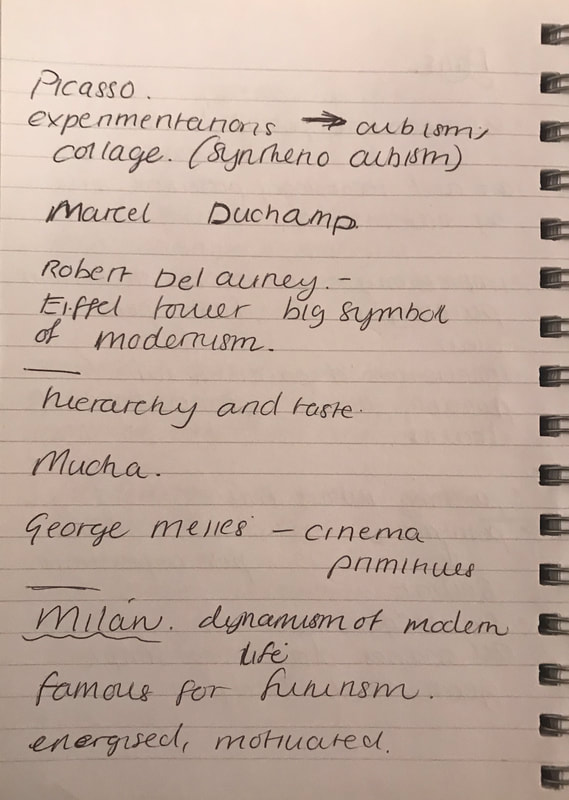 Picasso.
experimentations → cubism,
collage. (synthetic cubism)
Marcel Duchamp.
Robert Delauney. -
Eiffel tower big symbol
of modernism.
hierarchy and taste.
Mucha.
George melies - cinema
primitives
Milan. dynamism of modern
life
famous for futurism.
energised, motivated.